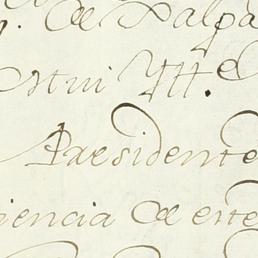 de Xalpa
Mui Ylle.
Presidente
iencia de este